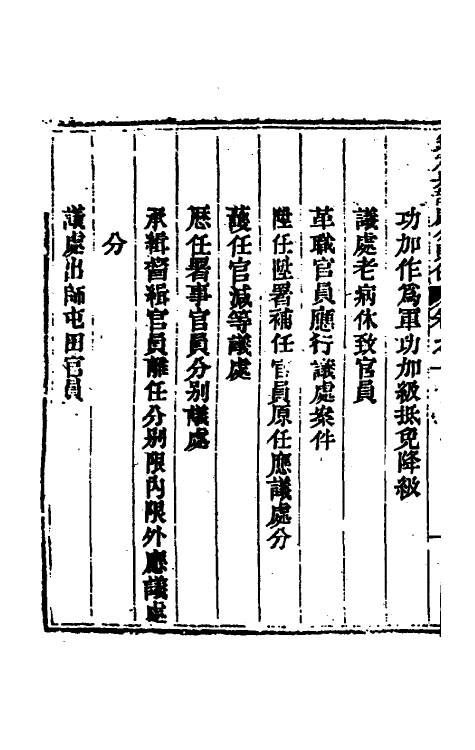 功加作爲軍功加級抵免降級
議處老病休致官員
革職官員應行議處案件
陞任陞署補任官員原任應議處分
護任官減等議處
歷任署事官員分别議處
承緝督緝官員離任分别限內限外應議處
分
議處出師屯田官員